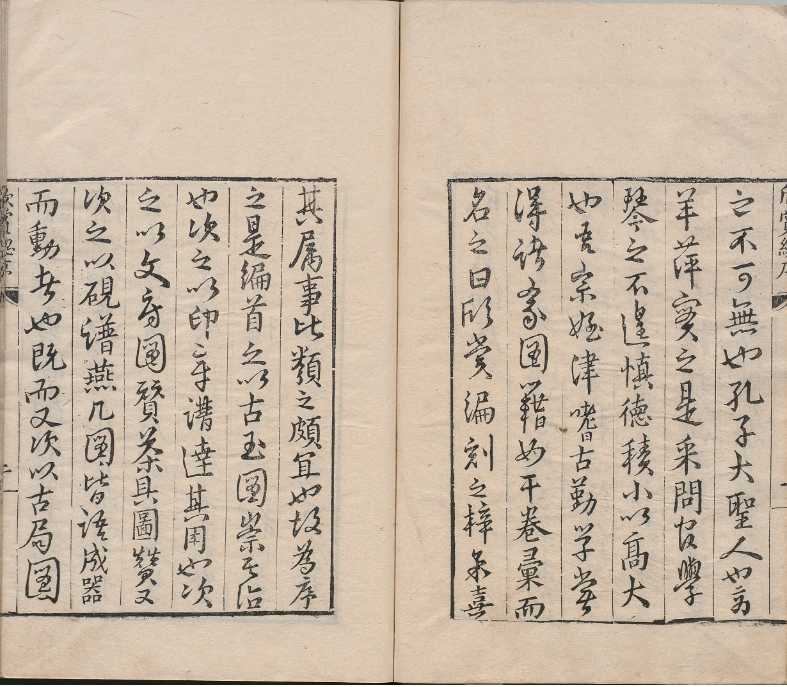 之不可無也孔子大聖人也商
羊萍實之是采問官學
琴之不遑慎德積小以高大
也吾宗姪津嗜古勤學嘗
得諸家圖籍如干卷彙而
名之曰欣賞編刻之梓余喜
其屬事比類之頗宜也故為序
之是編首之以古玉圖崇其治
也次之以印章譜達其用也次
之以文房圖贊茶具圖贊又
次之以硯譜燕几圖皆語成器
而動者也既而又次以古局圖
欣賞總序
二